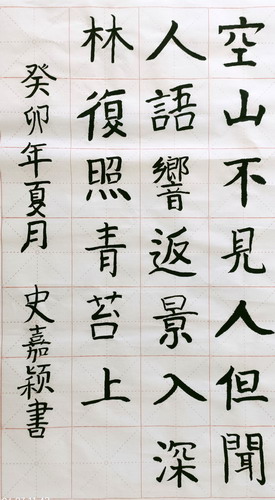 空山不見人但聞
人語響返景入深
林復照青苔上
癸卯年夏月 史嘉颖書